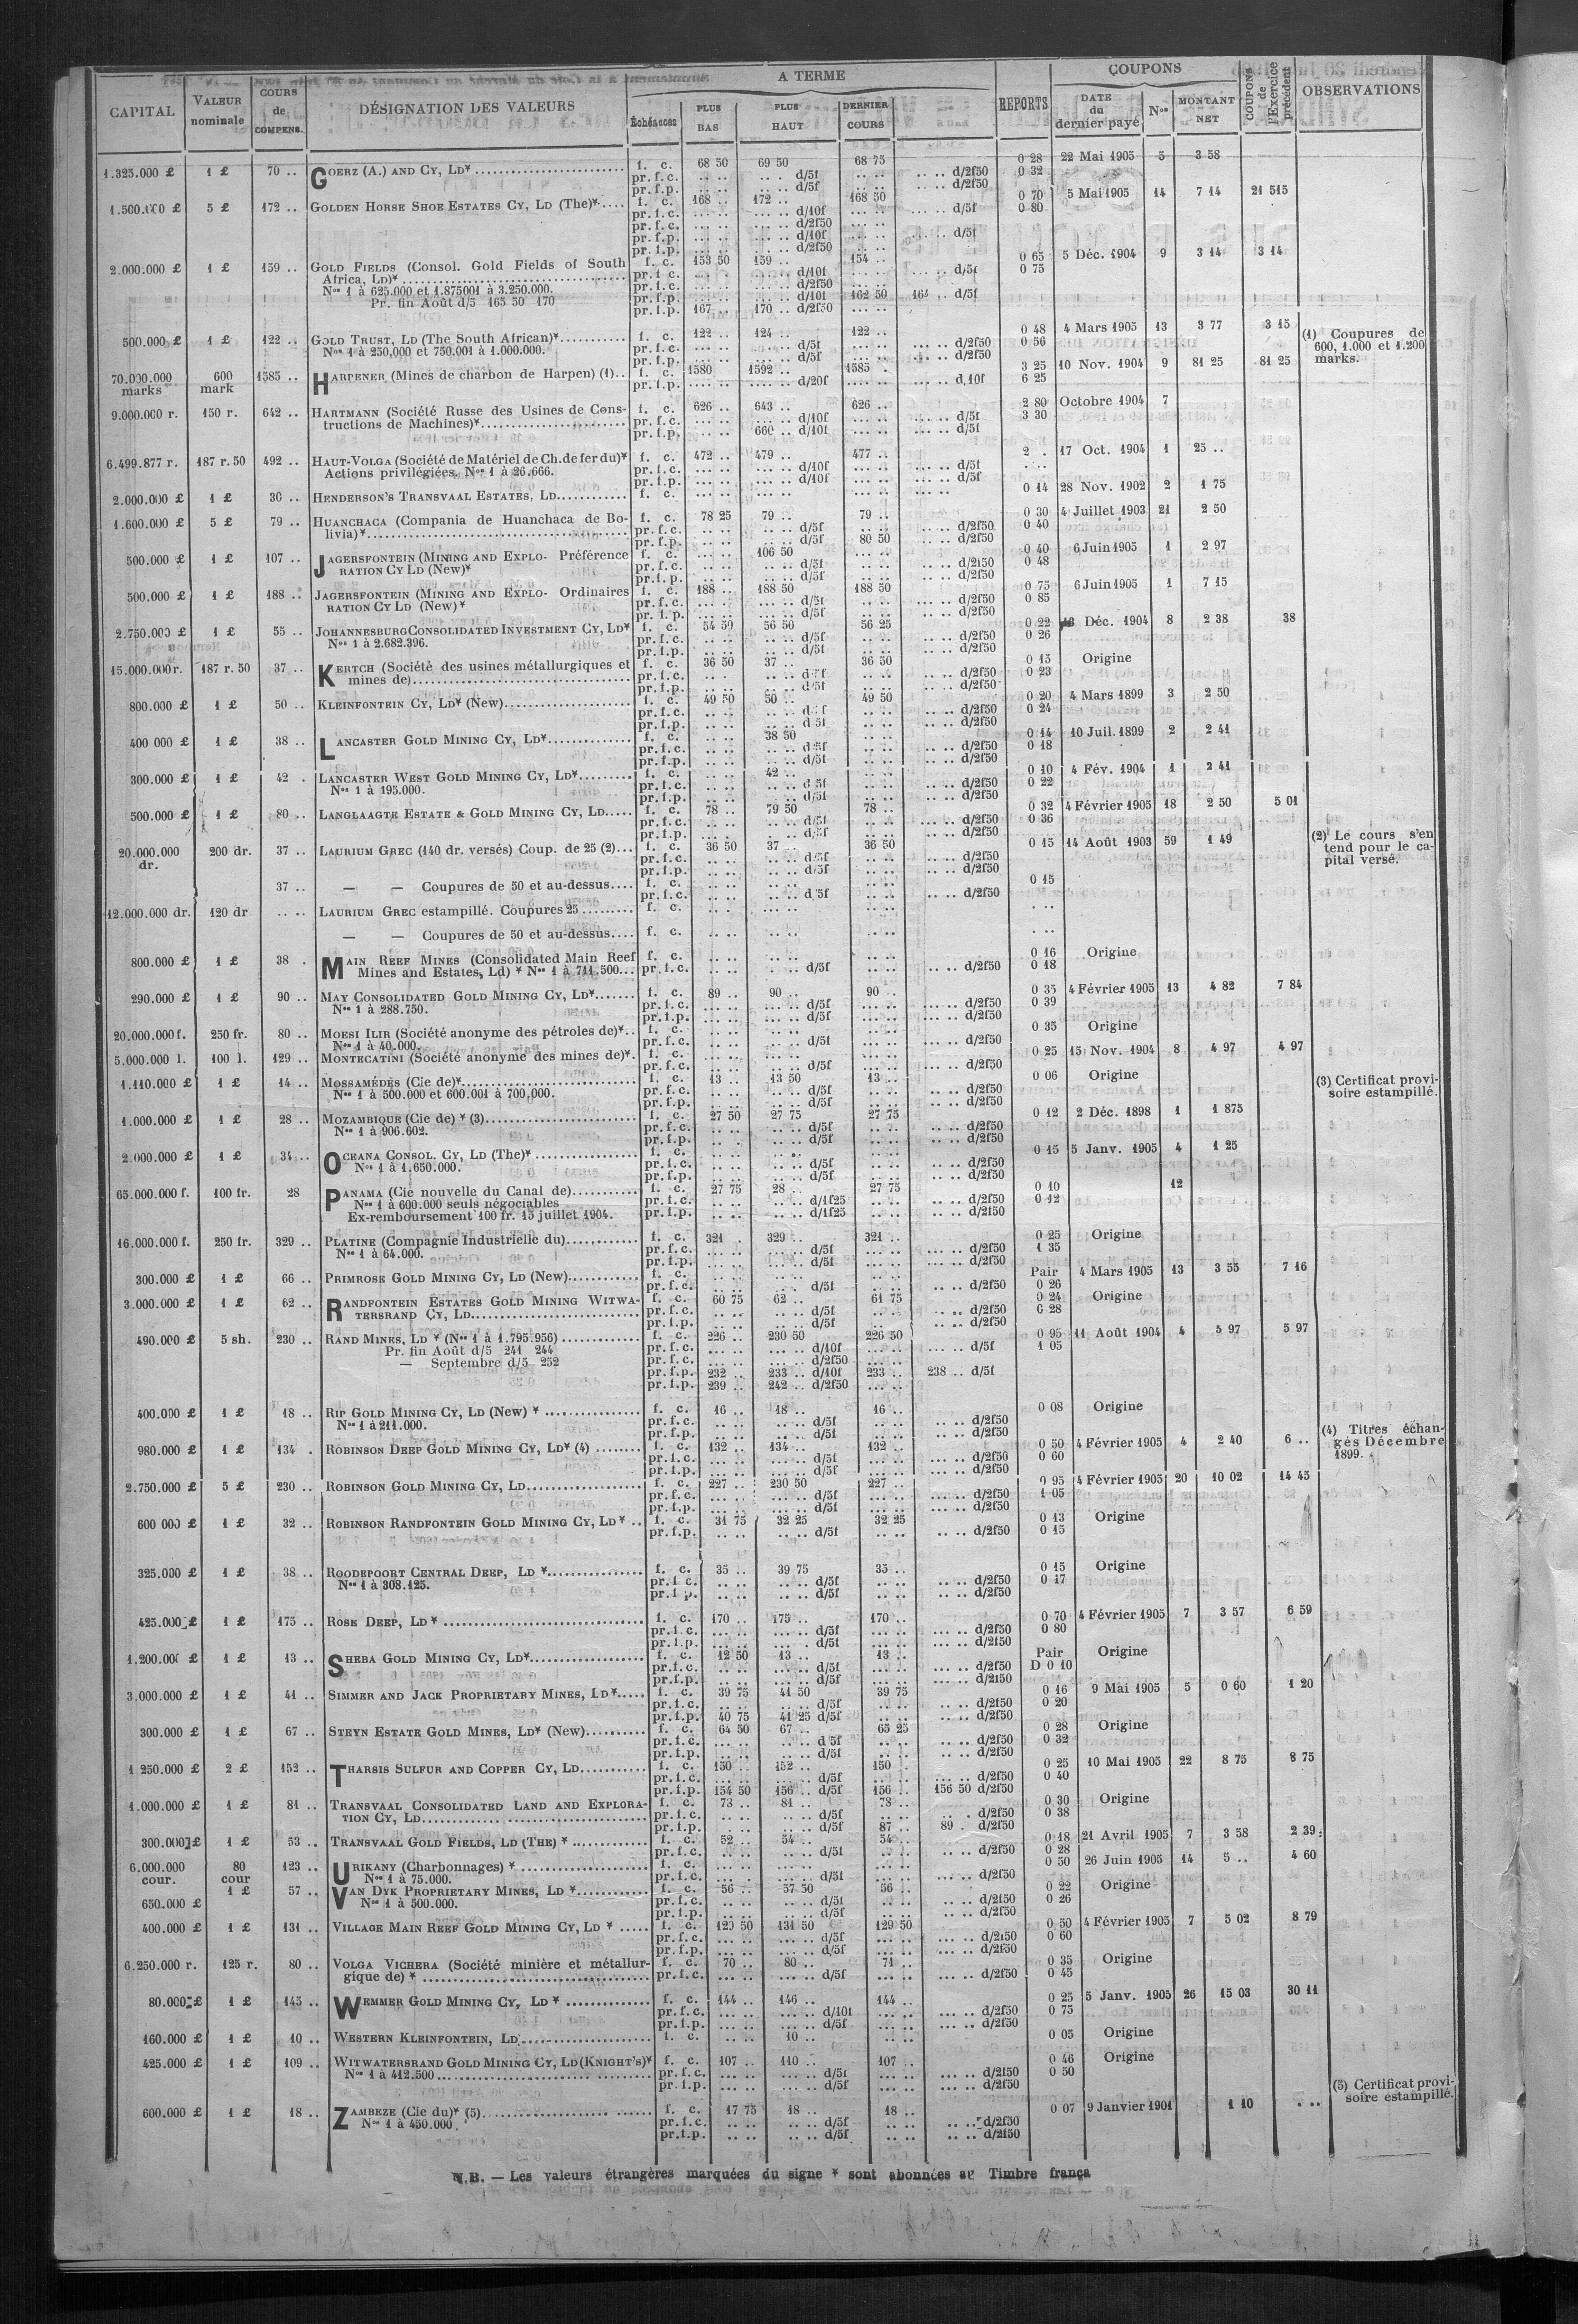 CAPITAL VALEUR nominale COURS de COMPENS. DÉSIGNATION DES VALEURS A TERME Échéances PLUS BAS PLUS HAUT DERNIER COURS REPORTS COUPONS DATE du dernier payé Nos MONTANT NET COUPONS de l'Exercice précédent OBSERVATIONS
1.325.000 £ 1 £ 70 .. GOERZ (A.) AND CY, LD* f. c. 68 50 69 50 68 75 0 28 22 Mai 1905 5 3 58
pr. f.c. .. .. .. .. d/5f .. .. .. .. d/2f50 0 32
pr. f.p. .. .. .. .. d/5f .. .. .. .. d/2f50
1.500.000 £ 5 £ 172 .. GOLDEN HORSE SHOE ESTATES CY, LD (The)* f. c. 168 .. 172 .. 168 50 0 70 5 Mai 1905 14 7 14 21 515
pr. f.c. ... .. ... .. d/10f ... .. ... .. d/5f 0 80
pr. f.c. ... .. ... .. d/2f50 ... ..
pr. f.p. ... .. ... .. d/10f ... .. ... .. d/5f
pr. f.p. ... .. ... .. d/2f50 ... ..
2.000.000 £ 1 £ 159 .. GOLD FIELDS (Consol. Gold Fields of South f. c. 153 50 159 .. 154 .. 0 65 5 Déc. 1904 9 3 14 3 14
Africa, LD)* pr. f.c. d/10f d/5f 0 75
Nos 1 à 625.000 et 1.875001 à 3.250.000. pr. f.c. d/2f50
Pr. fin Août d/5 165 50 170 pr. f.p. d/10f 162 50 164 .. d/5f
pr. f.p. 167 .. 170 .. d/2f50
500.000 £ 1 £ 122 .. GOLD TRUST, LD (The South African)* f. c. 122 .. 124 .. 122 .. 0 48 4 Mars 1905 13 3 77 3 15 (1) Coupures de
Nos 1 à 250,000 et 750.001 à 1.000.000. pr. f.c. d/5f d/2f50 0 56 600, 1.000 et 1.200
pr. f.p. d/5f d/2f50 marks.
70.000.000 marks 600 mark 1585 .. HARPENER (Mines de charbon de Harpen) (1) f. c. 1580 1592 .. 1585 . 3 25 10 Nov. 1904 9 81 25 81 25
pr. f.p. d/20f d.10f 6 25
9.000.000 r. 150 r. 642 .. HARTMANN (Société Russe des Usines de Cons- f. c. 626 .. 643 .. 626 .. 2 80 Octobre 1904 7
tructions de Machines)* pr. f.c. d/10f d/5f 3 30
pr. f.p. 660 .. d/10f d/5f
6.499.877 r. 187 r. 50 492 .. HAUT-VOLGA (Société de Matériel de Ch. de fer du)* f. c. 472 .. 479 .. 477 .. 2 . 17 Oct. 1904 1 25 ..
Actions privilégiées. Nos 1 à 26.666. pr. f.c. d/10f d/5f
pr. f.p. d/10f d/5f
2.000.000 £ 1 £ 30 .. HENDERSON'S TRANSVAAL ESTATES, LD f. c. 0 14 28 Nov. 1902 2 1 75
1.600.000 £ 5 £ 79 .. HUANCHACA (Compania de Huanchaca de Bo- f. c. 78 25 79 .. 79 .. 0 30 4 Juillet 1903 21 2 50
livia)* pr. f.c. d/5f d/2f50 0 40
pr. f.p. d/5f 80 50 d/2f50
500.000 £ 1 £ 107 .. JAGERSFONTEIN (MINING AND EXPLO- Préférence f. c. 106 50 0 40 6 Juin 1905 1 2 97
RATION CY LD (New)* pr. f.c. d/5f d/2f50 0 48
pr. f.p. d/5f d/2f50
500.000 £ 1 £ 188 .. JAGERSFONTEIN (MINING AND EXPLO- Ordinaires f. c. 188 .. 188 50 188 50 0 75 6 Juin 1905 1 7 15
RATION CY LD (New)* pr. f.c. d/5f d/2f50 0 85
pr. f.p. d/5f d/2f50
2.750.000 £ 1 £ 55 .. JOHANNESBURG CONSOLIDATED INVESTMENT CY, LD* f. c. 54 50 56 50 56 25 0 22 Déc. 1904 8 2 38 38
Nos 1 à 2.682.396. pr. f.c. d/5f d/2f50 0 26
pr. f.p. d/5f d/2f50
15.000.000 r. 187 r. 50 37 .. KERTCH (Société des usines métallurgiques et f. c. 36 50 37 .. 36 50 0 15 Origine
mines de) pr. f.c. d/5f d/2f50 0 23
pr. f.p. d/5f d/2f50
800.000 £ 1 £ 50 .. KLEINFONTEIN CY, LD* (New) f. c. 49 50 50 .. 49 50 0 20 4 Mars 1899 3 2 50
pr. f.c. d/5f d/2f50 0 24
pr. f.p. d 5f d/2f50
400 000 £ 1 £ 38 .. LANCASTER GOLD MINING CY, LD* f. c. 38 50 0 14 10 Juil. 1899 2 2 41
pr. f.c. d/5f d/2f50 0 18
pr. f.p. d/5f d/2f50
300.000 £ 1 £ 42 . LANCASTER WEST GOLD MINING CY, LD* f. c. 42 .. 0 10 4 Fév. 1904 1 2 41
Nos 1 à 195.000. pr. f.c. d 5f d/2f50 0 22
pr. f.p. d/5f d/2f50
500.000 £ 1 £ 80 .. LANGLAAGTE ESTATE & GOLD MINING CY, LD f. c. 78 .. 79 50 78 .. 0 32 4 Février 1905 18 2 50 5 01
pr. f.c. d/5f d/2f50 0 36
pr. f.p. d/5f d/2f50 (2) Le cours s'en
20.000.000 dr. 200 dr. 37 .. LAURIUM GREC (140 dr. versés) Coup. de 25 (2) f. c. 36 50 37 .. 36 50 0 15 14 Août 1903 59 1 49 tend pour le ca-
pr. f.c. d/5f d/2f50 pital versé.
pr. f.p. d/5f d/2f50
37 .. — — Coupures de 50 et au-dessus f. c. 0 15
pr. f.c. d/5f d/2f50
12.000.000 dr. 120 dr .. .. LAURIUM GREC estampillé. Coupures 25 f. c.
— — Coupures de 50 et au-dessus f. c.
800.000 £ 1 £ 38 . MAIN REEF MINES (Consolidated Main Reef f. c. 0 16 Origine
Mines and Estates, Ld) * Nos 1 à 711.500 pr. f.c. d/5f d/2f50 0 18
290.000 £ 1 £ 90 .. MAY CONSOLIDATED GOLD MINING CY, LD* f. c. 89 .. 90 .. 90 .. 0 35 4 Février 1905 13 4 82 7 84
Nos 1 à 288.750. pr. f.c. d/5f d/2f50 0 39
pr. f.p. d/5f d/2f50
20.000.000 f. 250 fr. 80 .. MOESI ILIR (Société anonyme des pétroles de)* f. c. 0 35 Origine
Nos 1 à 40.000. pr. f.c. d/5f d/2f50
5.000.000 l. 100 l. 129 .. MONTECATINI (Société anonyme des mines de)* f. c. 0 25 15 Nov. 1904 8 4 97 4 97
pr. f.c. d/5f d/2f50
1.110.000 £ 1 £ 14 .. MOSSAMÉDÈS (Cie de)* f. c. 13 .. 13 50 13 .. 0 06 Origine (3) Certificat provi-
Nos 1 à 500.000 et 600.001 à 700.000. pr. f.c. d/5f d/2f50 soire estampillé.
pr. f.p. d/5f d/2f50
1.000.000 £ 1 £ 28 .. MOZAMBIQUE (Cie de) * (3) f. c. 27 50 27 75 27 75 0 12 2 Déc. 1898 1 1 875
Nos 1 à 906.602. pr. f.c. d/5f d/2f50
pr. f.p. d/5f d/2f50
2.000.000 £ 1 £ 34 .. OCEANA CONSOL. CY, LD (The)* f. c. 0 15 5 Janv. 1905 4 1 25
Nos 1 à 1.650.000. pr. f.c. d/5f d/2f50
pr. f.p. d/5f d/2f50
65.000.000 f. 100 fr. 28 PANAMA (Cie nouvelle du Canal de) f. c. 27 75 28 .. 27 75 0 10 12
Nos 1 à 600.000 seuls négociables pr. f.c. d/1f25 d/2f50 0 12
Ex-remboursement 100 fr. 15 juillet 1904. pr. f.p. d/1f25 d/2f50
16.000.000 f. 250 fr. 329 .. PLATINE (Compagnie Industrielle du) f. c. 321 . 329 .. 321 .. 0 25 Origine
Nos 1 à 64.000. pr. f.c. d/5f d/2f50 1 35
pr. f.p. d/5f d/2f50
300.000 £ 1 £ 66 .. PRIMROSE GOLD MINING CY, LD (New) f. c. Pair 4 Mars 1905 13 3 55 7 16
pr. f.c. d/5f d/2f50 0 26
3.000.000 £ 1 £ 62 .. RANDFONTEIN ESTATES GOLD MINING WITWA- f. c. 60 75 62 .. 61 75 0 24 Origine
TERSRAND CY, LD pr. f.c. d/5f d/2f50 0 28
pr. f.p. d/5f d/2f50
490.000 £ 5 sh. 230 .. RAND MINES, LD * (Nos 1 à 1.795.956) f. c. 226 .. 230 50 226 50 0 95 11 Août 1904 4 5 97 5 97
Pr. fin Août d/5 241 244 pr. f.c. d/10f d/5f 1 05
— Septembre d/5 252 pr. f.c. d/2f50
pr. f.p. 232 .. 233 .. d/10f 233 .. 238 .. d/5f
pr. f.p. 239 .. 242 .. d/2f50
400.000 £ 1 £ 18 .. RIP GOLD MINING CY, LD (New) * f. c. 16 .. 18 .. 16 .. 0 08 Origine
Nos 1 à 211.000. pr. f.c. d/5f d/2f50
pr. f.p. d/5f d/2f50 (4) Titres échan-
980.000 £ 1 £ 134 . ROBINSON DEEP GOLD MINING CY, LD* (4) f. c. 132 .. 134 .. 132 .. 0 50 4 Février 1905 4 2 40 6 .. gés Décembre
pr. f.c. d/5f d/2f50 0 60 1899.
pr. f.p. d/5f d/2f50
2.750.000 £ 5 £ 230 .. ROBINSON GOLD MINING CY, LD f. c. 227 .. 230 50 227 .. 0 95 4 Février 1905 20 10 02 14 45
pr. f.c. d/5f d/2f50 1 05
pr. f.p. d/5f d/2f50
600 000 £ 1 £ 32 .. ROBINSON RANDFONTEIN GOLD MINING CY, LD * f. c. 31 75 32 25 32 25 0 13 Origine
pr. f.p. d/5f d/2f50 0 15
325.000 £ 1 £ 38 .. ROODEPOORT CENTRAL DEEP, LD * f. c. 35 .. 39 75 35 .. 0 15 Origine
Nos 1 à 308.125. pr. f.c. d/5f d/2f50 0 17
pr. f.p. d/5f d/2f50
425.000 £ 1 £ 175 .. ROSE DEEP, LD * f. c. 170 .. 175 .. 170 .. 0 70 4 Février 1905 7 3 57 6 59
pr. f.c. d/5f d/2f50 0 80
pr. f.p. d/5f d/2f50
1.200.000 £ 1 £ 13 .. SHEBA GOLD MINING CY, LD* f. c. 12 50 13 .. 13 .. Pair Origine
pr. f.c. d/5f d/2f50 D 0 10
pr. f.p. d/5f d/2f50
3.000.000 £ 1 £ 41 .. SIMMER AND JACK PROPRIETARY MINES, LD* f. c. 39 75 41 50 39 75 0 16 9 Mai 1905 5 0 60 1 20
pr. f.c. d/5f d/2f50 0 20
pr. f.p. 40 75 41 25 d/5f d/2f50
300.000 £ 1 £ 67 .. STEYN ESTATE GOLD MINES, LD* (New) f. c. 64 50 67 .. 65 25 0 28 Origine
pr. f.c. d 5f d/2f50 0 32
pr. f.p. d/5f d/2f50
1 250.000 £ 2 £ 152 .. THARSIS SULFUR AND COPPER CY, LD f. c. 150 .. 152 .. 150 . 0 25 10 Mai 1905 22 8 75 8 75
pr. f.c. d/5f d/2f50 0 40
pr. f.p. 154 50 156 .. d/5f 156 .. 156 50 d/2f50
1.000.000 £ 1 £ 81 .. TRANSVAAL CONSOLIDATED LAND AND EXPLORA- f. c. 73 .. 81 .. 78 .. 0 30 Origine
TION CY, LD pr. f.c. d/5f d/2f50 0 38
pr. f.p. d/5f 87 .. 89 . d/2f50
300.000 £ 1 £ 53 .. TRANSVAAL GOLD FIELDS, LD (THE) * f. c. 52 .. 54 .. 54 .. 0 18 21 Avril 1905 7 3 58 2 39
pr. f.c. d/5f d/2f50 0 28
6.000.000 cour. 80 cour 123 .. URIKANY (Charbonnages) * f. c. 0 50 26 Juin 1905 14 5 .. 4 60
Nos 1 à 75.000. pr. f.c. d/5f d/2f50
650.000 £ 1 £ 57 .. VAN DYK PROPRIETARY MINES, LD * f. c. 56 .. 57 50 56 .. 0 22 Origine
Nos 1 à 500.000. pr. f.c. d/5f d/2f50 0 26
pr. f.p. d/5f d/2f50
400.000 £ 1 £ 131 .. VILLAGE MAIN REEF GOLD MINING CY, LD * f. c. 129 50 131 50 129 50 0 50 4 Février 1905 7 5 02 8 79
pr. f.c. d/5f d/2f50 0 60
pr. f.p. d/5f d/2f50
6.250.000 r. 125 r. 80 .. VOLGA VICHERA (Société minière et métallur- f. c. 70 .. 80 .. 71 .. 0 35 Origine
gique de) * pr. f.c. d/5f d/2f50 0 45
80.000 £ 1 £ 145 .. WEMMER GOLD MINING CY, LD * f. c. 144 .. 146 .. 144 .. 0 25 5 Janv. 1905 26 15 03 30 11
pr. f.c. d/10f d/2f50 0 75
pr. f.p. d/5f d/2f50
160.000 £ 1 £ 10 .. WESTERN KLEINFONTEIN, LD f. c. 10 .. 0 05 Origine
425.000 £ 1 £ 109 .. WITWATERSRAND GOLD MINING CY, LD (KNIGHT'S)* f. c. 107 .. 110 .. 107 .. 0 46 Origine
Nos 1 à 412.500 pr. f.c. d/5f d/2f50 0 50
pr. f.p. d/5f d/2f50 (5) Certificat provi-
600.000 £ 1 £ 18 .. ZAMBEZE (Cie du)* (5) f. c. 17 75 18 .. 18 .. 0 07 9 Janvier 1901 1 10 . .. soire estampillé.
Nos 1 à 450.000. pr. f.c. d/5f d/2f50
pr. f.p. d/5f d/2f50
N.B. — Les valeurs étrangères marquées du signe * sont abonnées au Timbre frança